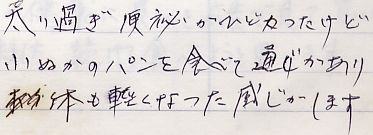 太り過ぎ便秘がひどかったけど
小ぬかのパンを食べて通じがあり
体も軽くなった感じがします